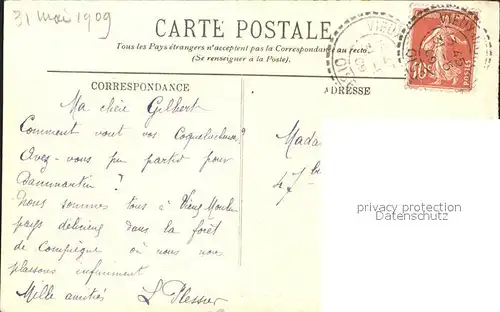 31 mai 1909
CARTE POSTALE
Tous les Pays étrangers n'acceptent pas la Correspondance au recto.
(Se renseigner à la Poste).
CORRESPONDANCE
ADRESSE
Ma chère Gilbert
Comment vont vos Coqueluches?
Avez-vous pu partir pour
Dammartin ?
Nous sommes tous à Vieux Moulin
pays délicieux dans la forêt
de Compiègne où nous nous
plaisons infiniment
Mille amitiés L Plessier
Mada
47
10
POSTES
privacy protection
Datenschutz